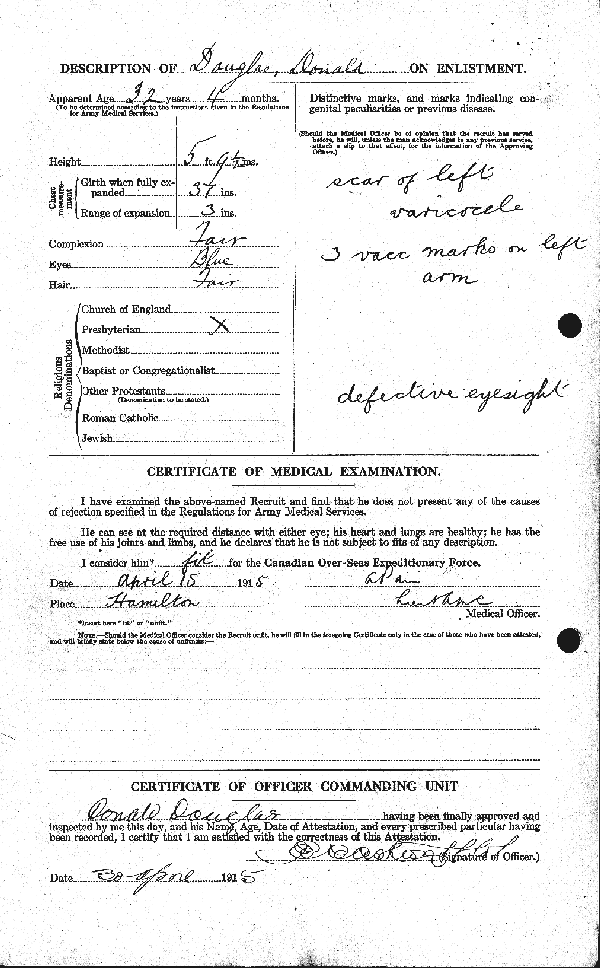 DESCRIPTION OF Douglas, Donald ON ENLISTMENT.
Apparent Age 32 years 4 months.
(To be determined according to the instructions given in the Regulations for Army Medical Services.)
Height 5 ft. 9½ ins.
Chest measurement
Girth when fully expanded 37 ins.
Range of expansion 3 ins.
Complexion Fair
Eyes Blue
Hair Fair
Religious Denominations
Church of England
Presbyterian X
Methodist
Baptist or Congregationalist
Other Protestants
(Denomination to be stated.)
Roman Catholic
Jewish
Distinctive marks, and marks indicating congenital peculiarities or previous disease.
(Should the Medical Officer be of opinion that the recruit has served before, he will, unless the man acknowledges to any previous service, attach a slip to that effect, for the information of the Approving Officer.)
scar of left
varicocele
3 vacc marks on left
arm
defective eyesight
CERTIFICATE OF MEDICAL EXAMINATION.
I have examined the above-named Recruit and find that he does not present any of the causes
of rejection specified in the Regulations for Army Medical Services.
He can see at the required distance with either eye; his heart and lungs are healthy; he has the
free use of his joints and limbs, and he declares that he is not subject to fits of any description.
I consider him* fit for the Canadian Over-Seas Expeditionary Force.
Date April 15 1915
Place Hamilton
Medical Officer.
*Insert here "fit" or "unfit."
NOTE.—Should the Medical Officer consider the Recruit unfit, he will fill in the foregoing Certificate only in the case of those who have been attested,
and will briefly state below the cause of unfitness:—
CERTIFICATE OF OFFICER COMMANDING UNIT
Donald Douglas having been finally approved and
inspected by me this day, and his Name, Age, Date of Attestation, and every prescribed particular having
been recorded, I certify that I am satisfied with the correctness of this Attestation.
(Signature of Officer.)
Date 30 April 1915